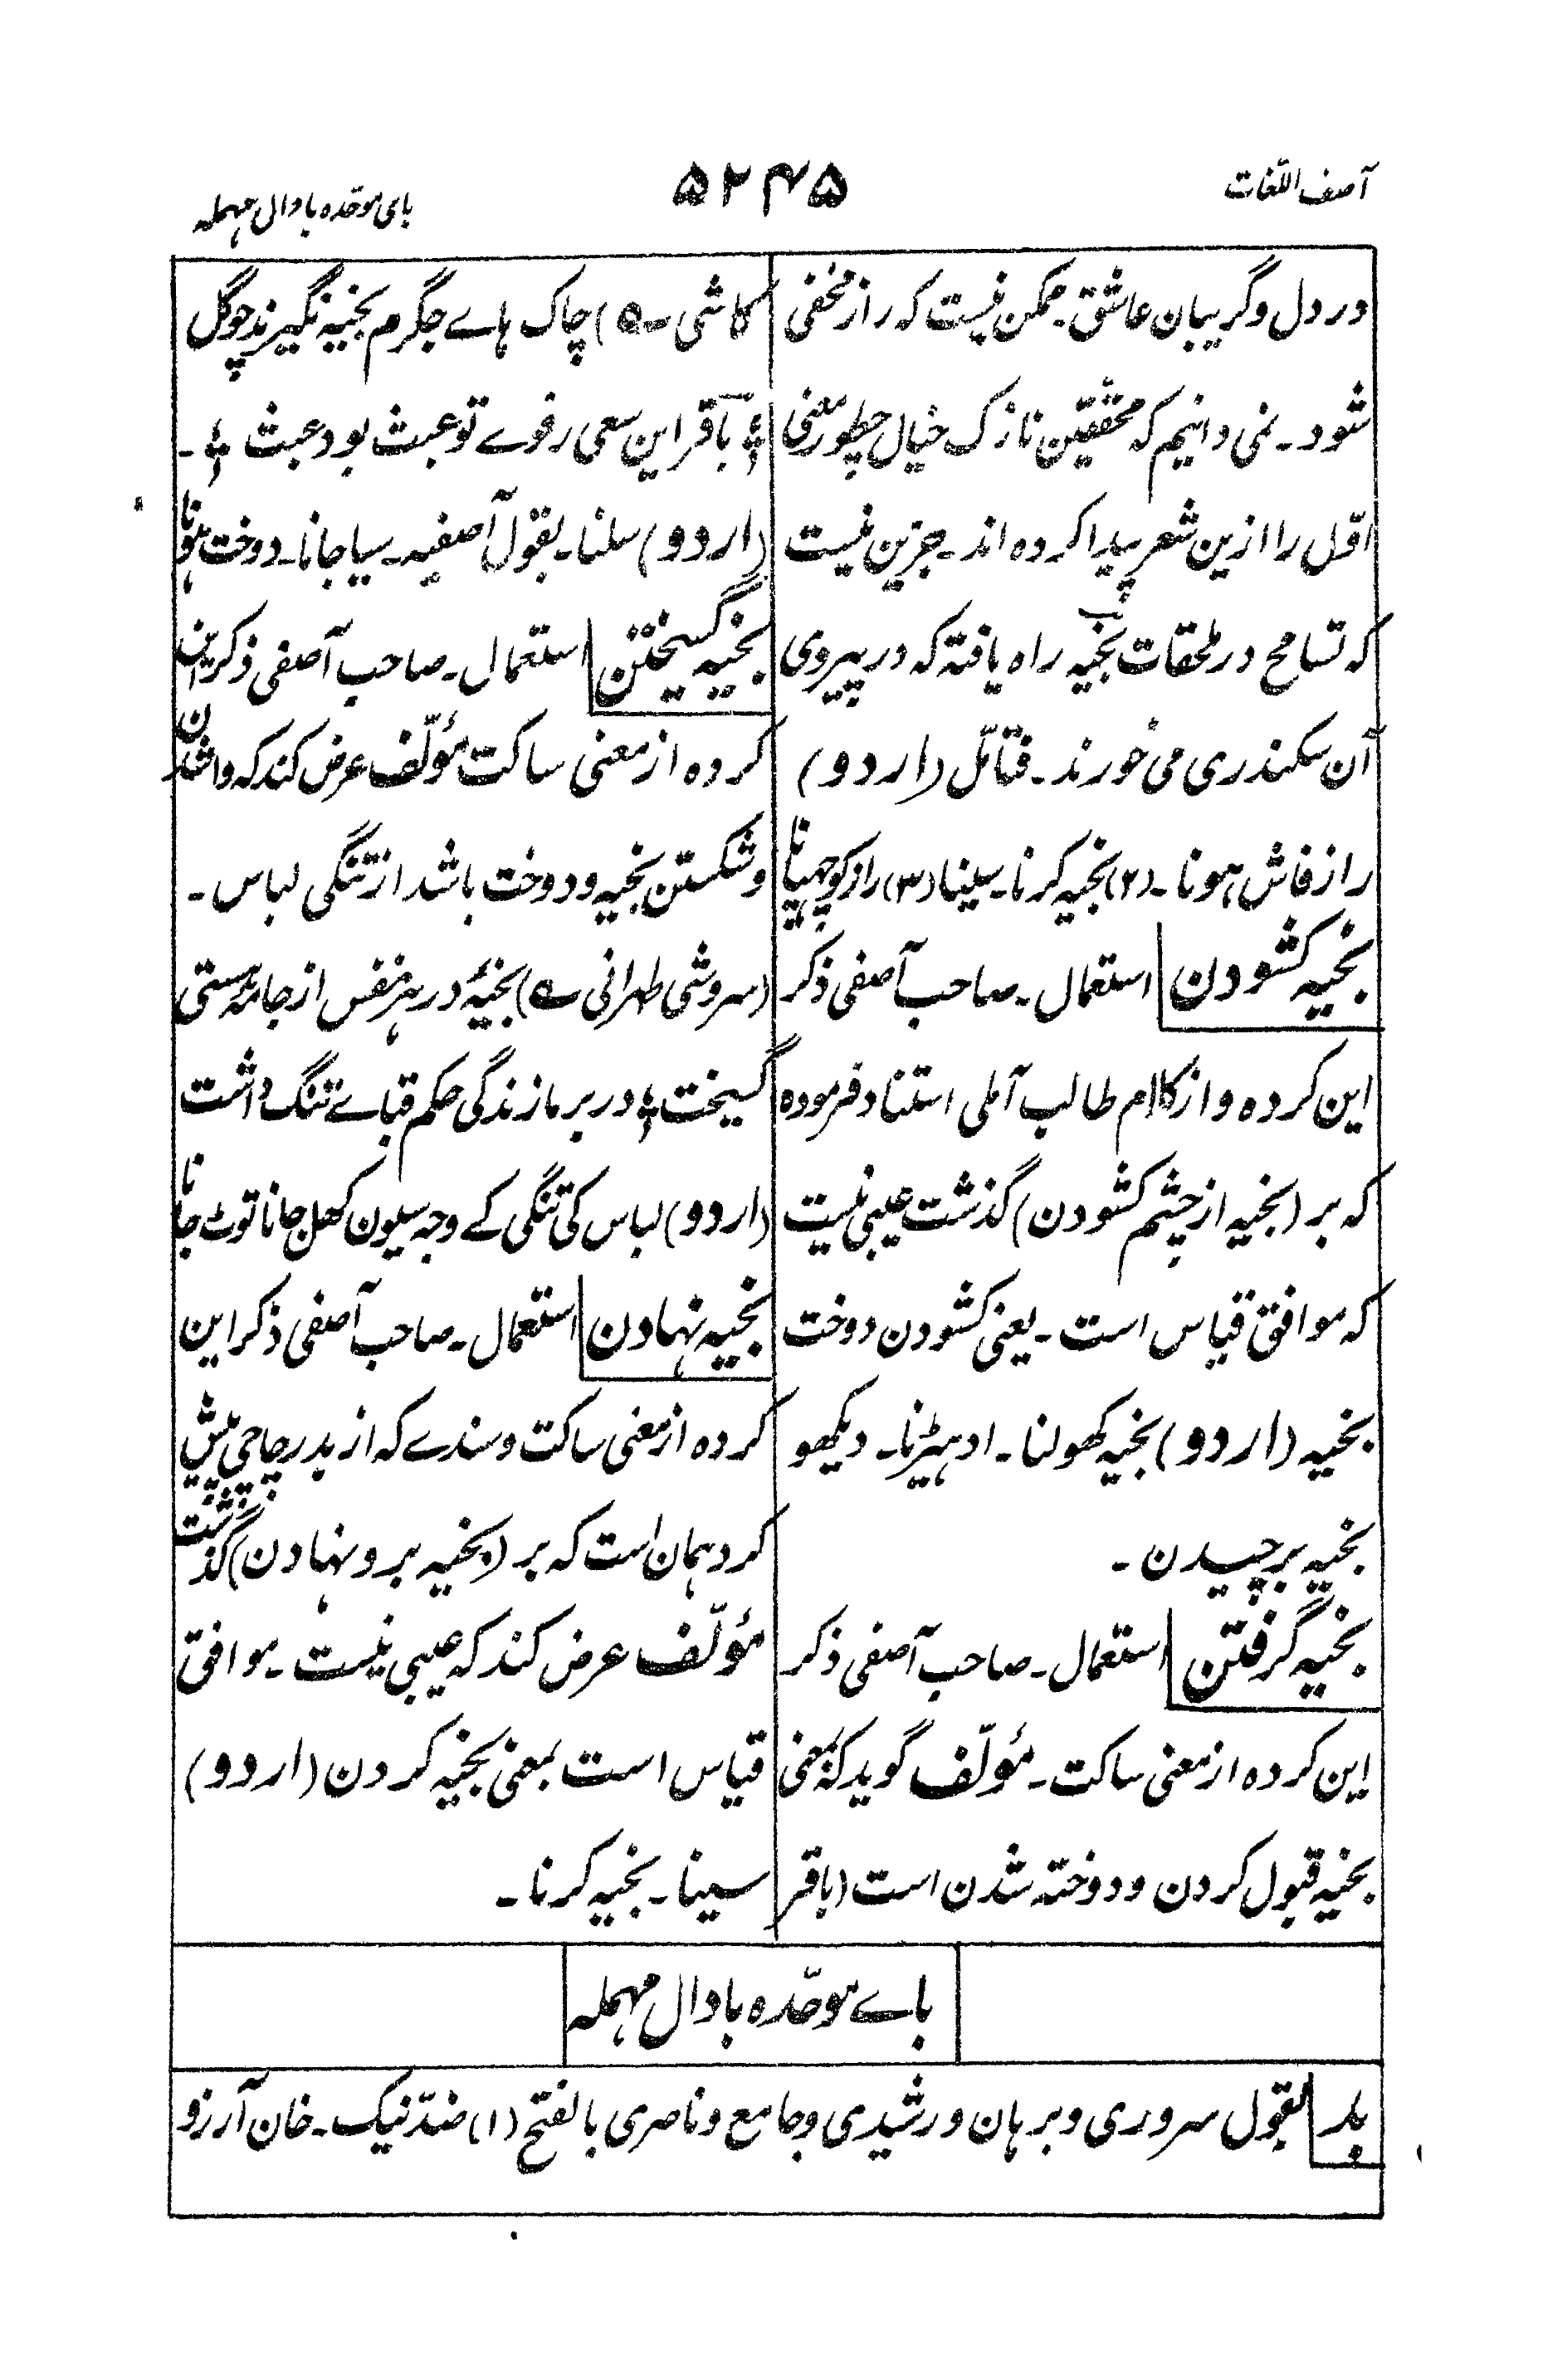 آصف اللّغات
۵۲۴۵
بای موحّده با دال مہملہ
در دل و گریبان عاشق۔ ممکن نیست کہ راز مخفی
شود۔ نمی دانیم کہ محققّین نازک خیال چطور معنی
اوّل را ازین شعر پیدا کردہ اند۔ جزین نیست
کہ تسامح در ملحقات بخیہ راہ یافتہ کہ در پیروی
آن سکندری می خورند۔ فتامّل (اردو)
راز فاش ہونا۔ (۲) بخیہ کرنا۔ سینا (۳) راز کو چھپانا
بخیہ کشودن استعمال۔ صاحب آصفی ذکر
این کردہ و از کلام طالب آملی استناد فرمودہ
کہ بر (بخیہ از چشم کشودن) گذشت عیبی نیست
کہ موافق قیاس است۔ یعنی کشودن دوخت
بخیہ (اردو) بخیہ کھولنا۔ ادہیڑنا۔ دیکھو
بخیہ برچیدن۔
بخیہ گرفتن استعمال۔ صاحب آصفی ذکر
این کردہ از معنی ساکت۔ مؤلّف گوید کہ بمعنی
بخیہ قبول کردن و دوختہ شدن است (باقر
کاشی ؎) چاک ہاے جگرم بخیہ نگیرند چو گل
؏ باقر این سعی رفوے تو عبث بود عبث ؏۔
(اردو) سلنا۔ بقول آصفیہ۔ سیا جانا۔ دوخت ہونا
بخیہ گسیختن استعمال۔ صاحب آصفی ذکر این
کردہ از معنی ساکت مؤلّف عرض کند کہ واشدن
و شکستن بخیہ و دوخت باشد از تنگی لباس۔
(سروشی طہرانی ؎) بخیۂ در ہر نفس از جامۂ ہستی
گسیخت ؏ در بر ما زندگی حکم قباے تنگ داشت
(اردو) لباس کی تنگی کے وجہ سیون کھل جانا ٹوٹ جانا
بخیہ نہادن استعمال۔ صاحب آصفی ذکر این
کردہ از معنی ساکت و سندے کہ از بدر چاچی پیش
کرد ہمان است کہ بر (بخیہ بر و نہادن) گذشت
مؤلّف عرض کند کہ عیبی نیست۔ موافق
قیاس است بمعنی بخیہ کردن (اردو)
سینا۔ بخیہ کرنا۔
باے موحّدہ با دال مہملہ
بد بقول سروری و برہان و رشیدی و جامع و ناصری بالفتح (۱) ضدّ نیک۔ خان آرزو